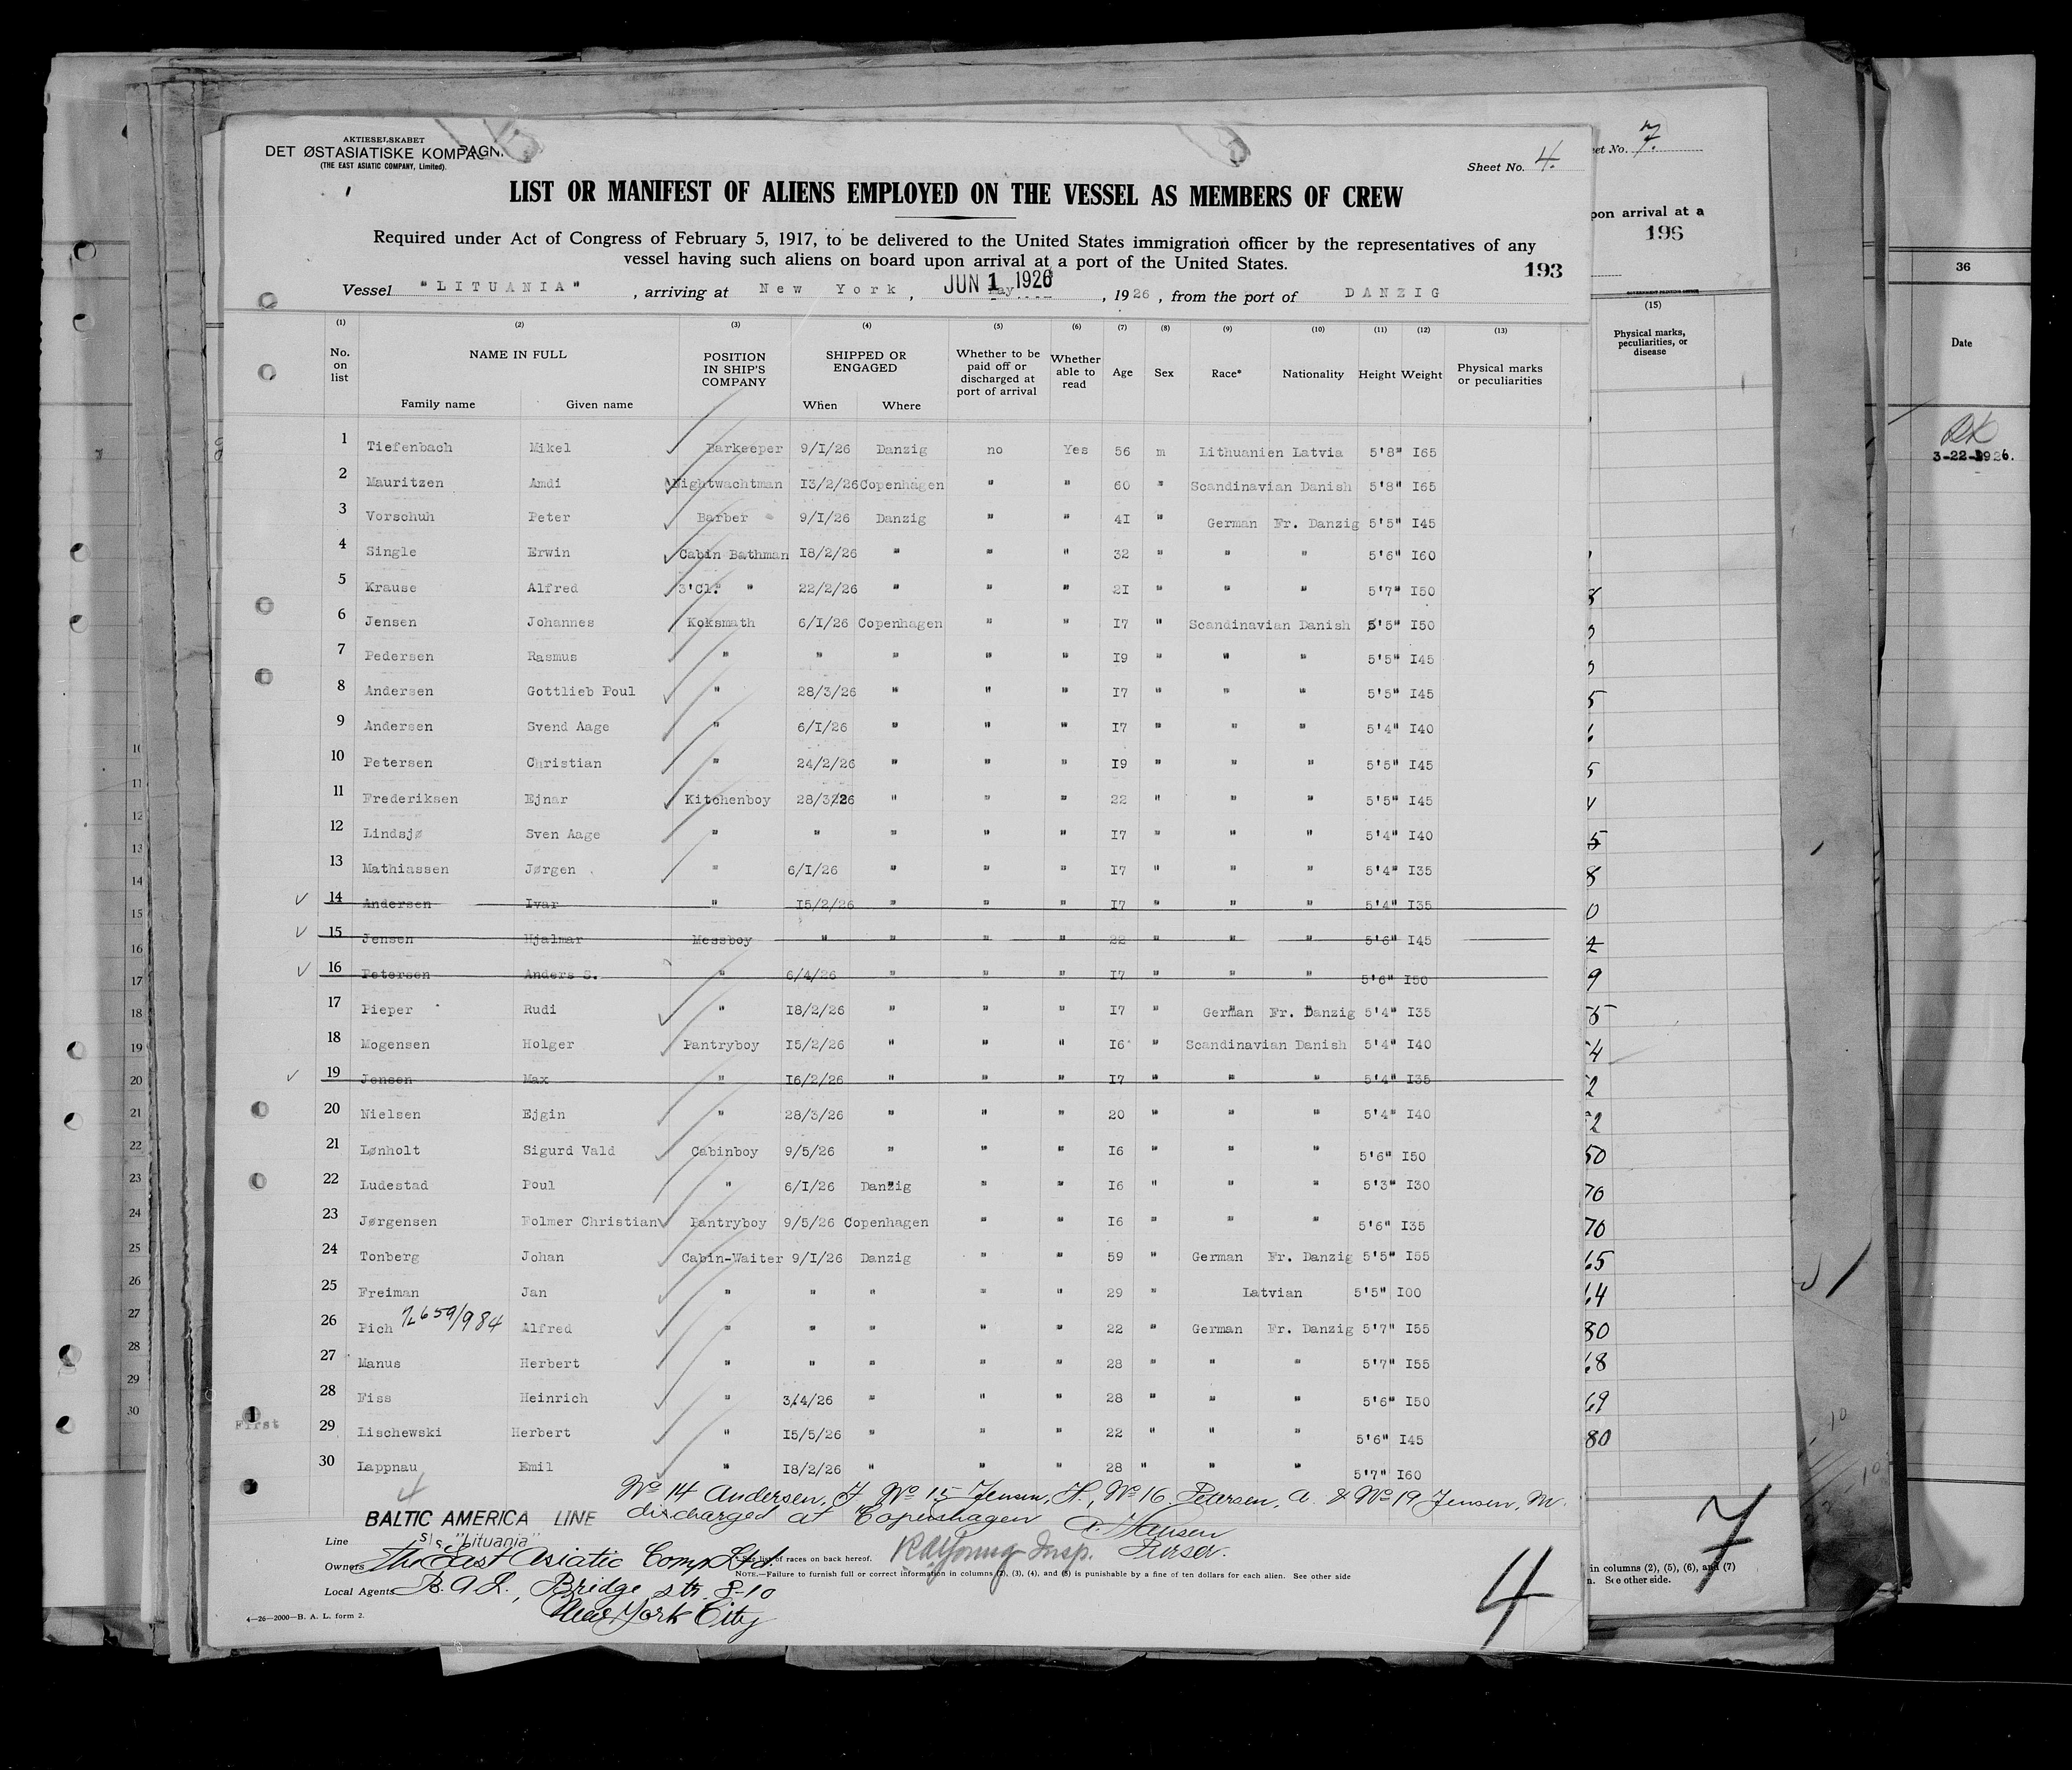 AKTIESELSKABET
DET ØSTASIATISKE KOMPAGNI
(THE EAST ASIATIC COMPANY, Limited).
Sheet No. 4.
LIST OR MANIFEST OF ALIENS EMPLOYED ON THE VESSEL AS MEMBERS OF CREW
Required under Act of Congress of February 5, 1917, to be delivered to the United States immigration officer by the representatives of any
vessel having such aliens on board upon arrival at a port of the United States.
193
Vessel "LITUANIA" , arriving at New York, JUN 1 1926 , 1926 , from the port of DANZIG
(1) (2) (3) (4) (5) (6) (7) (8) (9) (10) (11) (12) (13)
No. on list NAME IN FULL POSITION IN SHIP'S COMPANY SHIPPED OR ENGAGED Whether to be paid off or discharged at port of arrival Whether able to read Age Sex Race* Nationality Height Weight Physical marks or peculiarities
Family name Given name When Where
1 Tiefenbach Mikel Barkeeper 9/I/26 Danzig no Yes 56 m Lithuanien Latvia 5'8" I65
2 Mauritzen Amdi Nightwachtman I3/2/26 Copenhagen " " 60 " Scandinavian Danish 5'8" I65
3 Vorschuh Peter Barber 9/I/26 Danzig " " 4I " German Fr. Danzig 5'5" I45
4 Single Erwin Cabin Bathman I8/2/26 " " " 32 " " " 5'6" I60
5 Krause Alfred 3'Cl. " 22/2/26 " " " 2I " " " 5'7" I50
6 Jensen Johannes Koksmath 6/I/26 Copenhagen " " I7 " Scandinavian Danish 5'5" I50
7 Pedersen Rasmus " " " " " I9 " " " 5'5" I45
8 Andersen Gottlieb Poul " 28/3/26 " " " I7 " " " 5'5" I45
9 Andersen Svend Aage " 6/I/26 " " " I7 " " " 5'4" I40
10 Petersen Christian " 24/2/26 " " " I9 " " " 5'5" I45
11 Frederiksen Ejnar Kitchenboy 28/3/26 " " " 22 " " " 5'5" I45
12 Lindsjø Sven Aage " " " " " I7 " " " 5'4" I40
13 Mathiassen Jørgen " 6/I/26 " " " I7 " " " 5'4" I35
14 Andersen Ivar " I5/2/26 " " " I7 " " " 5'4" I35
15 Jensen Hjalmar Messboy " " " " 22 " " " 5'6" I45
16 Petersen Anders S. " 6/4/26 " " " I7 " " " 5'6" I50
17 Pieper Rudi " I8/2/26 " " " I7 " German Fr. Danzig 5'4" I35
18 Mogensen Holger Pantryboy I5/2/26 " " " I6 " Scandinavian Danish 5'4" I40
19 Jensen Max " I6/2/26 " " " I7 " " " 5'4" I35
20 Nielsen Ejgin " 28/3/26 " " " 20 " " " 5'4" I40
21 Lønholt Sigurd Vald Cabinboy 9/5/26 " " " I6 " " " 5'6" I50
22 Ludestad Poul " 6/I/26 Danzig " " I6 " " " 5'3" I30
23 Jørgensen Folmer Christian Pantryboy 9/5/26 Copenhagen " " I6 " " " 5'6" I35
24 Tonberg Johan Cabin-Waiter 9/I/26 Danzig " " 59 " German Fr. Danzig 5'5" I55
25 Freiman Jan " " " " " 29 " Latvian 5'5" I00
26 Pich 72659/984 Alfred " " " " " 22 " German Fr. Danzig 5'7" I55
27 Manus Herbert " " " " " 28 " " " 5'7" I55
28 Fiss Heinrich " 3/4/26 " " " 28 " " " 5'6" I50
29 Lischewski Herbert " I5/5/26 " " " 22 " " " 5'6" I45
30 Lappnau Emil " I8/2/26 " " " 28 " " " 5'7" I60
First
4
No 14 Andersen, I, No 15 Jensen, H., No 16 Petersen, A. & No 19 Jensen, M.
discharged at Copenhagen
P. Hansen
Purser.
BALTIC AMERICA LINE
Line s/s "Lituania"
Owners The East Asiatic Comp Ltd. *See list of races on back hereof. R A Young Insp.
NOTE.—Failure to furnish full or correct information in columns (2), (3), (4), and (5) is punishable by a fine of ten dollars for each alien. See other side
Local Agents B. A. L., Bridge str. 8-10
New York City
4—26—2000—B. A. L. form 2.
4
Sheet No. 7.
upon arrival at a
196
(15)
Physical marks, peculiarities, or disease
in columns (2), (5), (6), and (7)
See other side.
7
36
Date
3-22-1926.